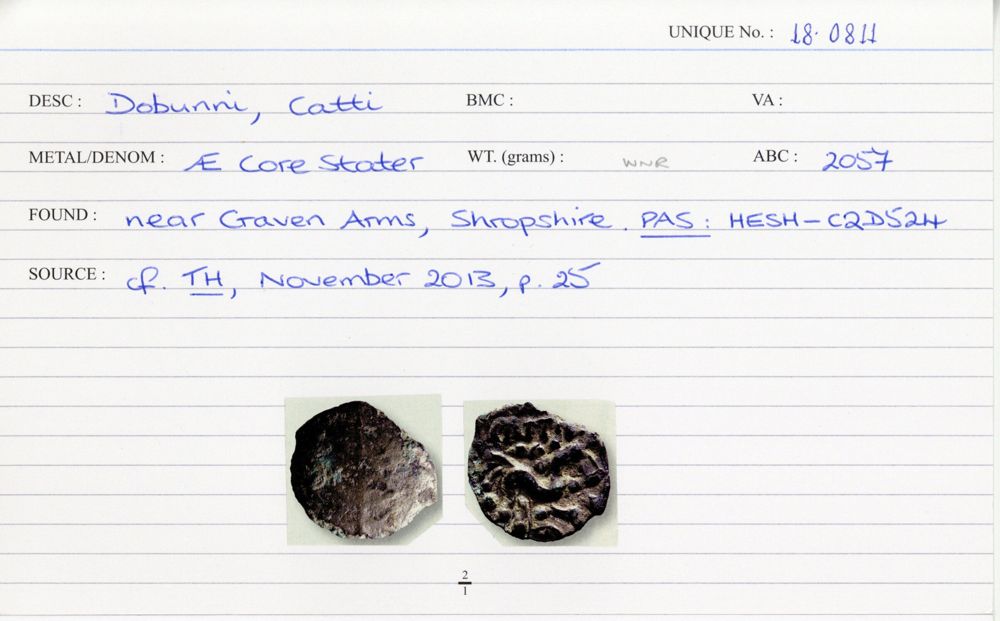 UNIQUE No. : 18.0811
DESC : Dobunni, Catti BMC : VA :
METAL/DENOM : Æ Core Stater WT. (grams) : WNR ABC : 2057
FOUND : near Craven Arms, Shropshire. PAS: HESH-C2D524
SOURCE : cf. TH, November 2013, p. 25
2
1